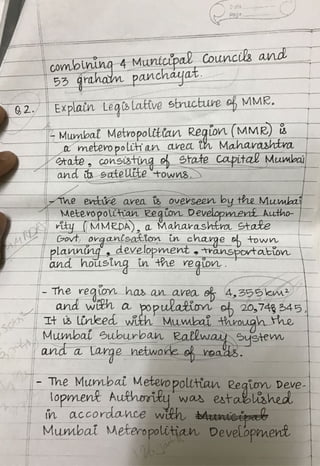 Date
Page
combining 4 Municipal Councils and
53 graham panchayat.
Q2. Explain Legislative structure of MMR.
- Mumbai Metropolitan Region (MMR) is
a meteropolitian area in Maharashtra
state, consisting of state Capital Mumbai
and its satellite towns.
- The entire area is overseen by the Mumbai
Meteropolitian Region Development Autho-
rity (MMRDA), a Maharashtra State
Govt. organisation in charge of town
planning, development, transportation
and housing in the region.
- The region has an area of 4,355 km²
and with a population of 20,748,345.
It is linked with Mumbai through the
Mumbai Suburban Railway System
and a large network of roads.
- The Mumbai Meteropolitian Region Deve-
lopment Authority was established
in accordance with Municipal
Mumbai Meteropolitian Development